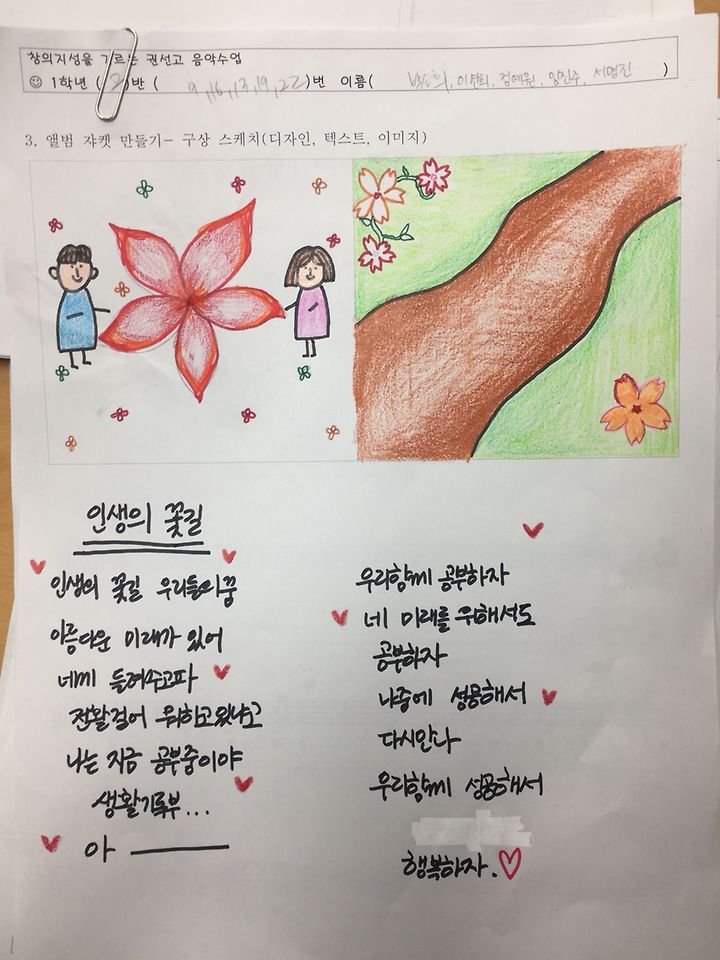 창의지성을 기르는 권선고 음악수업
☺ 1학년 ( 2 )반 ( 9, 16, 17, 19, 22 )번 이름( )
3. 앨범 쟈켓 만들기- 구상 스케치(디자인, 텍스트, 이미지)
인생의 꽃길
인생의 꽃길 우리들의 꿈
아름다운 미래가 있어
네게 들려주고파
전활걸어 뭐하고있냐고
나는 지금 공부중이야
생활기록부...
아 ———
우리함께 공부하자
네 미래를 위해서도
공부하자
나중에 성공해서
다시만나
우리함께 성공해서
행복하자.♡